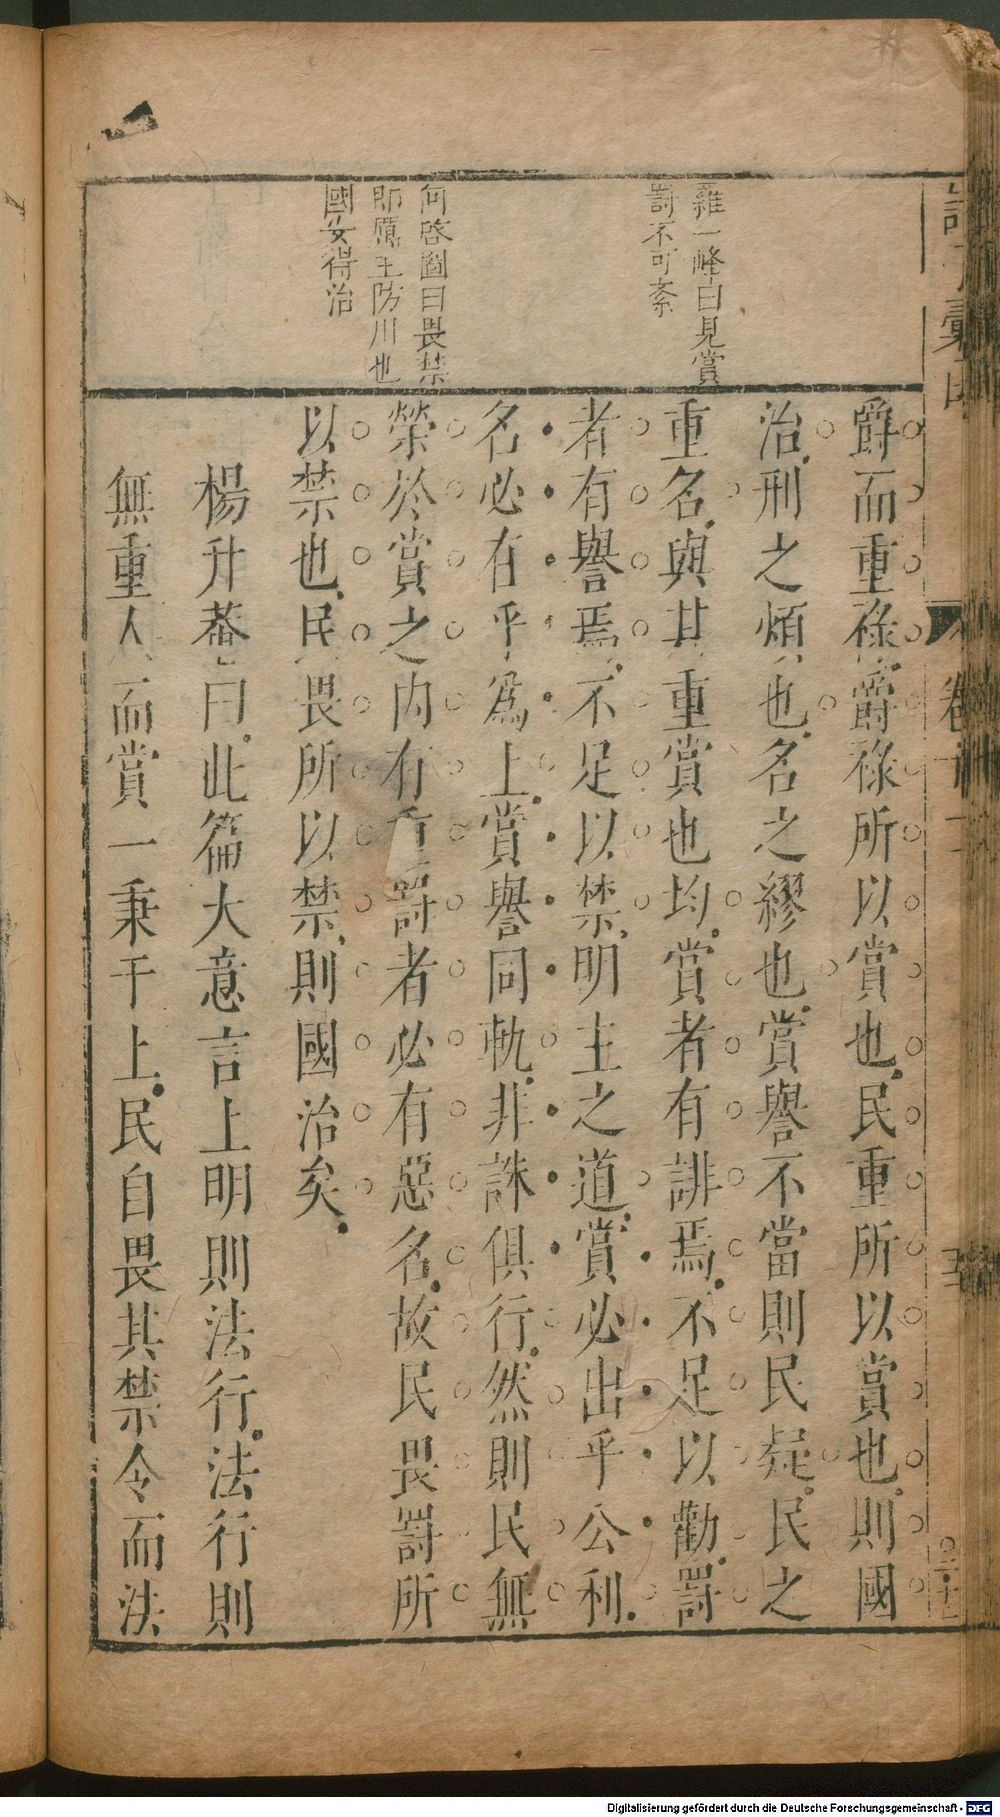 羅一峰曰見賞
罰不可紊
何啓圖曰畏禁
即厲王防川也
國安得治
爵而重祿爵祿所以賞也民重所以賞也則國
治刑之煩也名之繆也賞譽不當則民疑民之
重名與其重賞也均賞者有誹焉不足以勸罰
者有譽焉不足以禁明主之道賞必出乎公利
名必在乎爲上賞譽同軌非誅俱行然則民無
榮於賞之內有重罰者必有惡名故民畏罰所
以禁也民畏所以禁則國治矣
楊升菴曰此篇大意言上明則法行法行則
無重人而賞一秉于上民自畏其禁令而法
Digitalisierung gefördert durch die Deutsche Forschungsgemeinschaft - DFG